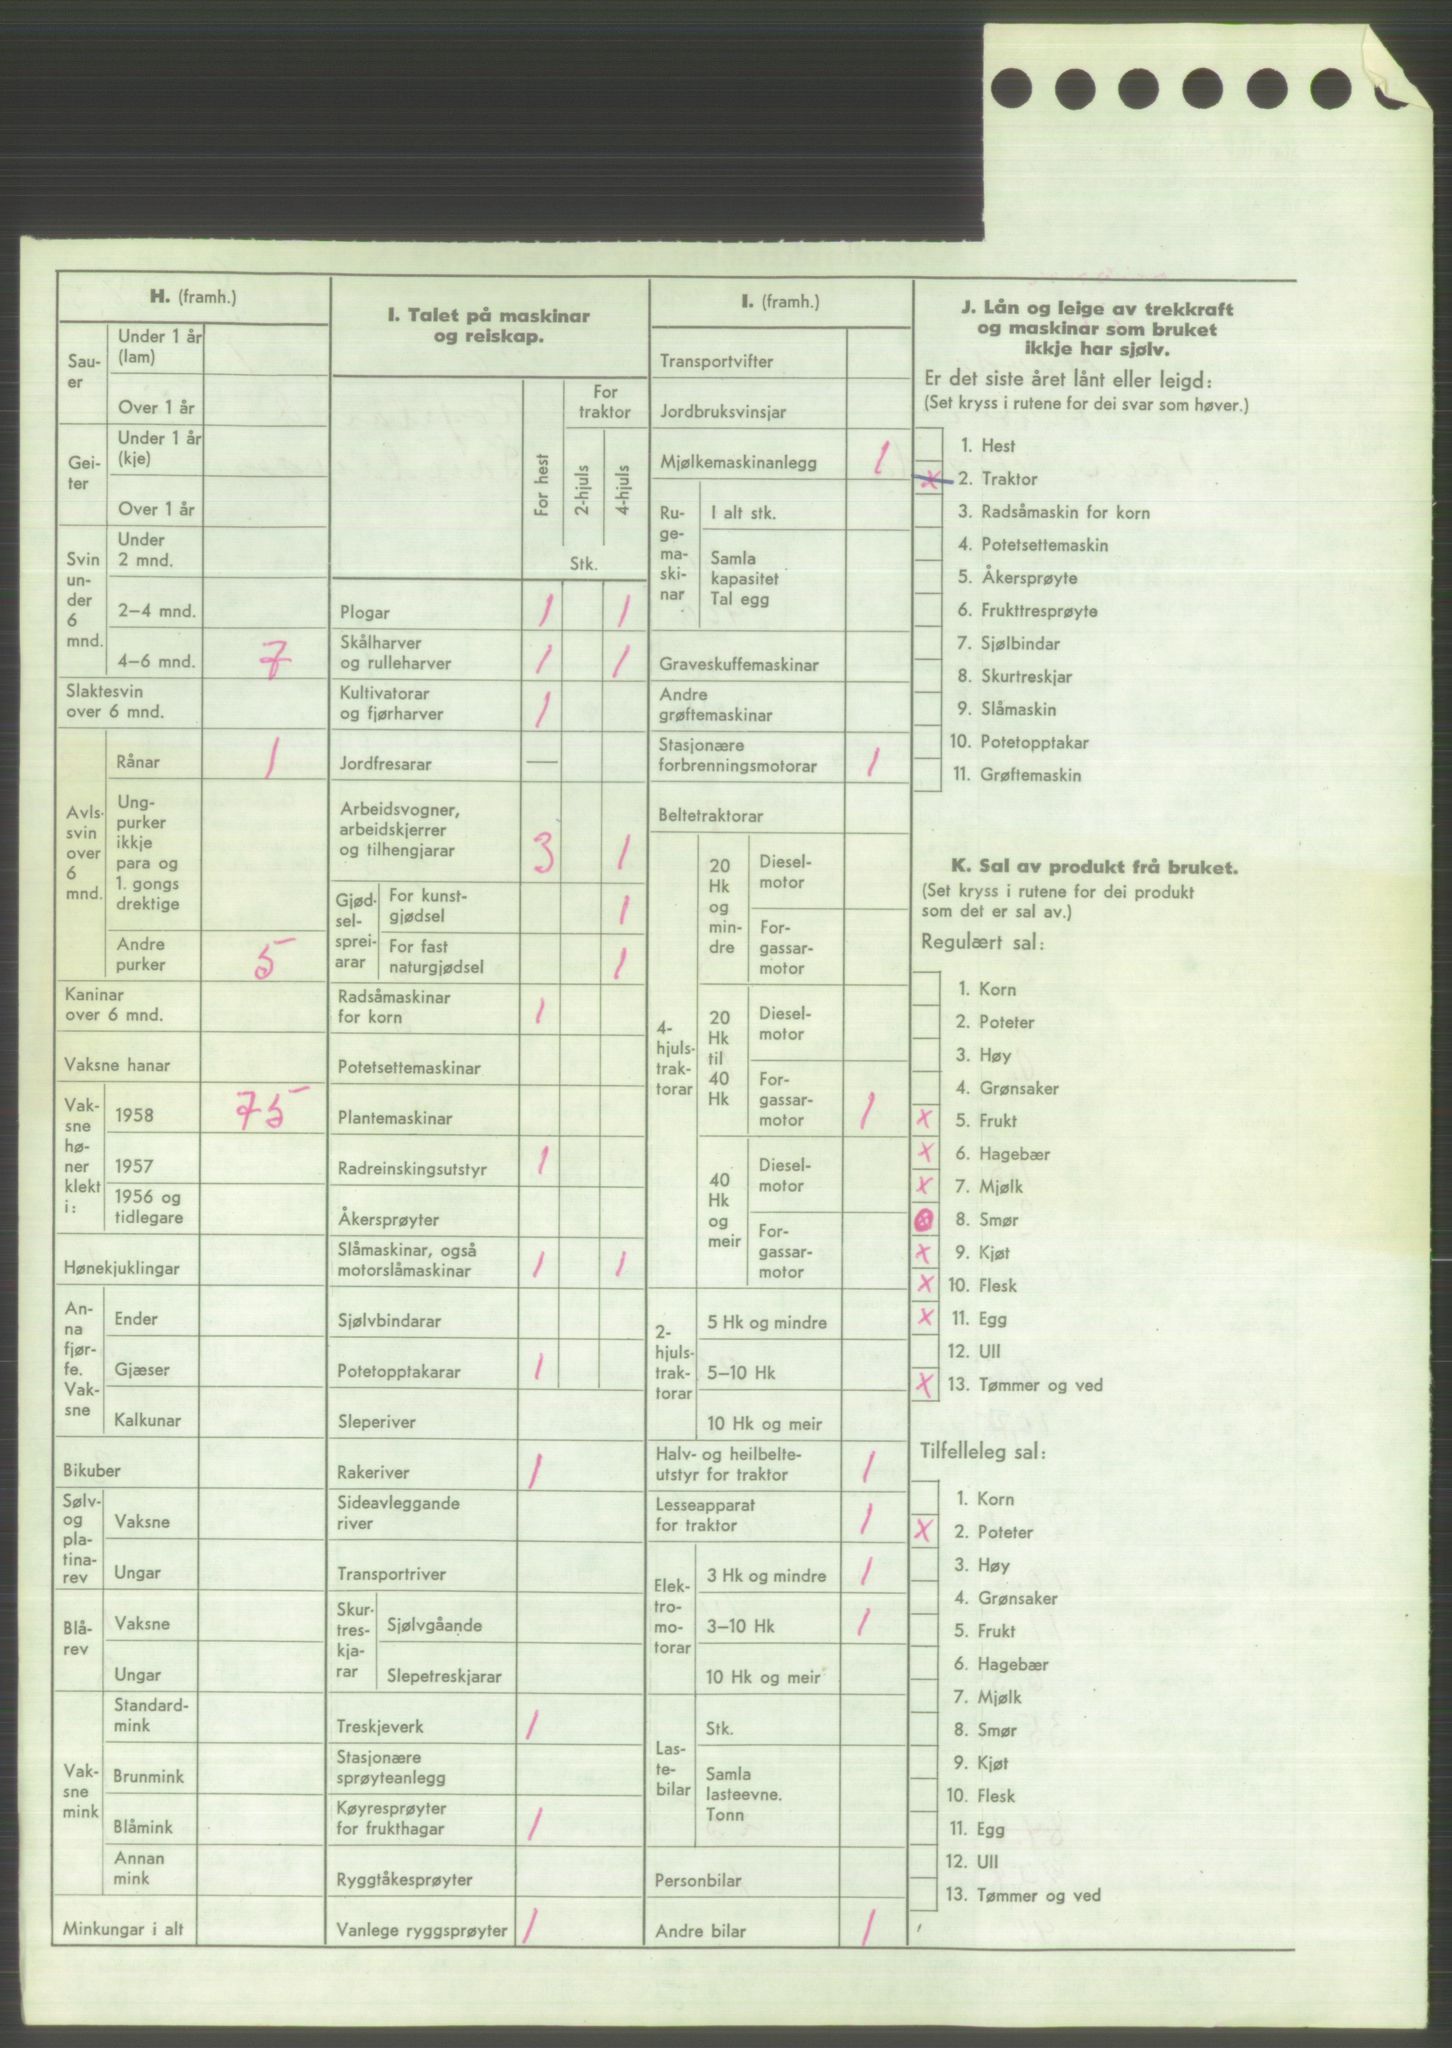 H. (framh.)
Sau-
er
Under 1 år
(lam)
Over 1 år
Gei-
ter
Under 1 år
(kje)
Over 1 år
Svin
un-
der
6
mnd.
Under
2 mnd.
2–4 mnd.
4–6 mnd. 7
Slaktesvin
over 6 mnd.
Avls-
svin
over
6
mnd.
Rånar 1
Ung-
purker
ikkje
para og
1. gongs
drektige
Andre
purker 5
Kaninar
over 6 mnd.
Vaksne hanar
Vak-
sne
hø-
ner
klekt
i:
1958 75
1957
1956 og
tidlegare
Hønekjuklingar
An-
na
fjør-
fe.
Vak-
sne
Ender
Gjæser
Kalkunar
Bikuber
Sølv-
og
pla-
tina-
rev
Vaksne
Ungar
Blå-
rev
Vaksne
Ungar
Vak-
sne
mink
Standard-
mink
Brunmink
Blåmink
Annan
mink
Minkungar i alt
I. Talet på maskinar
og reiskap.
For hest
For
traktor
2-hjuls
4-hjuls
Stk.
Plogar 1 1
Skålharver
og rulleharver 1 1
Kultivatorar
og fjørharver 1
Jordfresarar —
Arbeidsvogner,
arbeidskjerrer
og tilhengjarar 3 1
Gjød-
sel-
sprei-
arar
For kunst-
gjødsel 1
For fast
naturgjødsel 1
Radsåmaskinar
for korn 1
Potetsettemaskinar
Plantemaskinar
Radreinskingsutstyr 1
Åkersprøyter
Slåmaskinar, også
motorslåmaskinar 1 1
Sjølvbindarar
Potetopptakarar 1
Sleperiver
Rakeriver 1
Sideavleggande
river
Transportriver
Skur-
tres-
kja-
rar
Sjølvgåande
Slepetreskjarar
Treskjeverk 1
Stasjonære
sprøyteanlegg
Køyresprøyter
for frukthagar 1
Ryggtåkesprøyter
Vanlege ryggsprøyter 1
I. (framh.)
Transportvifter
Jordbruksvinsjar
Mjølkemaskinanlegg 1
Ru-
ge-
ma-
ski-
nar
I alt stk.
Samla
kapasitet
Tal egg
Graveskuffemaskinar
Andre
grøftemaskinar
Stasjonære
forbrenningsmotorar 1
Beltetraktorar
4-
hjuls-
trak-
torar
20
Hk
og
min-
dre
Diesel-
motor
For-
gassar-
motor
20
Hk
til
40
Hk
Diesel-
motor
For-
gassar-
motor 1
40
Hk
og
meir
Diesel-
motor
For-
gassar-
motor
2-
hjuls-
trak-
torar
5 Hk og mindre
5–10 Hk
10 Hk og meir
Halv- og heilbelte-
utstyr for traktor 1
Lesseapparat
for traktor 1
Elek-
tro-
mo-
torar
3 Hk og mindre 1
3–10 Hk 1
10 Hk og meir
Las-
te-
bilar
Stk.
Samla
lasteevne.
Tonn
Personbilar
Andre bilar 1
J. Lån og leige av trekkraft
og maskinar som bruket
ikkje har sjølv.
Er det siste året lånt eller leigd:
(Set kryss i rutene for dei svar som høver.)
1. Hest
x 2. Traktor
3. Radsåmaskin for korn
4. Potetsettemaskin
5. Åkersprøyte
6. Frukttresprøyte
7. Sjølbindar
8. Skurtreskjar
9. Slåmaskin
10. Potetopptakar
11. Grøftemaskin
K. Sal av produkt frå bruket.
(Set kryss i rutene for dei produkt
som det er sal av.)
Regulært sal:
1. Korn
2. Poteter
3. Høy
4. Grønsaker
x 5. Frukt
x 6. Hagebær
x 7. Mjølk
8. Smør
x 9. Kjøt
x 10. Flesk
x 11. Egg
12. Ull
x 13. Tømmer og ved
Tilfelleleg sal:
1. Korn
x 2. Poteter
3. Høy
4. Grønsaker
5. Frukt
6. Hagebær
7. Mjølk
8. Smør
9. Kjøt
10. Flesk
11. Egg
12. Ull
13. Tømmer og ved